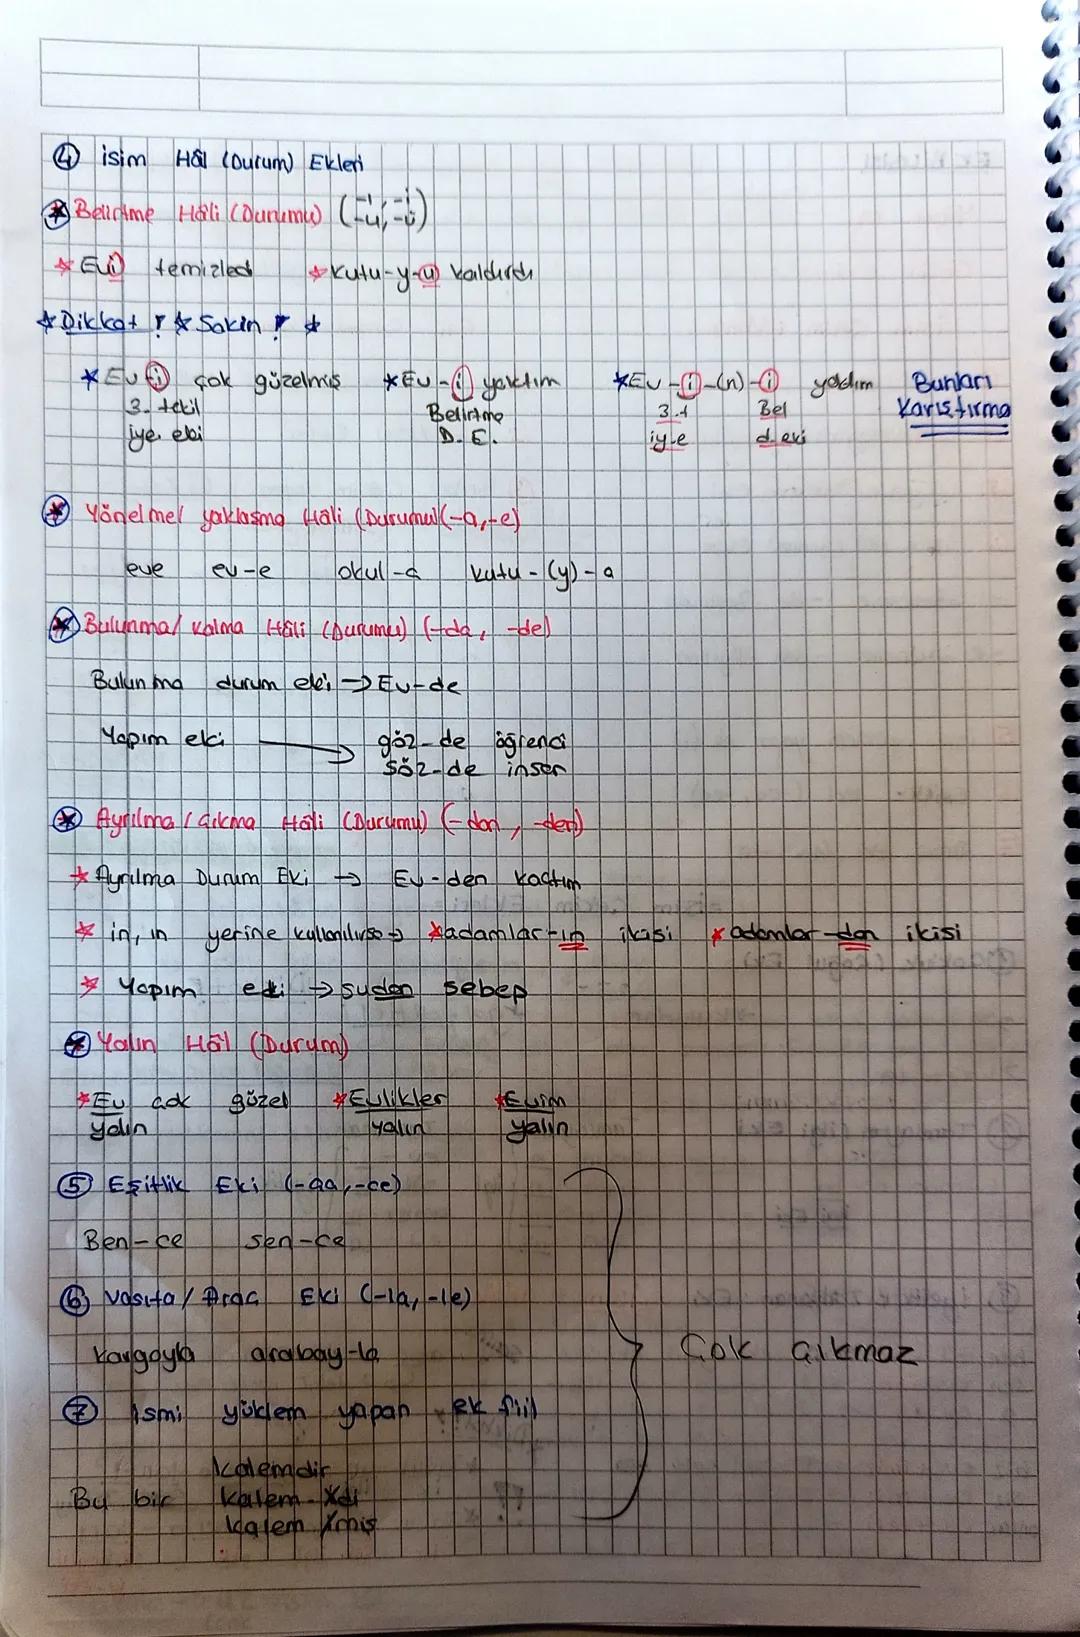 ④ isim Hâl (Durum) Ekleri
* Belirtme Hâli (Durumu) (-ı, -i, -u, -ü)
* Evi temizledi * Kutu-y-u kaldırdı
* Dikkat ! * Sakin ! *
* Ev-i çok güzelmiş * Ev-i yaktım * Ev-i-(n)-i yaktım Bunları
3. tekil Belirtme 3.t Bel Karıştırma
iye eki D. E. iye d. eki
* Yönelme/ yaklaşma Hâli (Durumu) (-a, -e)
eve ev-e okul-a kutu-(y)-a
* Bulunma/ kalma Hâli (Durumu) (-da, -de)
Bulunma durum eki → Ev-de
Yapım eki → göz-de öğrenci
söz-de insan
* Ayrılma / Çıkma Hâli (Durumu) (-dan, -den)
* Ayrılma Durum Eki → Ev-den kaçtım
* in, ın yerine kullanılırsa → * adamlar-ın ikisi * adamlar-dan ikisi
* Yapım eki → sudan sebep
* Yalın Hâl (Durum)
* Ev çok güzel * Evlikler * Evim
yalın yalın yalın
⑤ Eşitlik Eki (-ca, -ce)
Ben-ce sen-ce
⑥ Vasıta / Araç Eki (-la, -le)
Kargoyla arabay-la Çok çıkmaz
⑦ ismi yüklem yapan ek fiil
kalemdir
Bu bir kalem-di
kalem miş